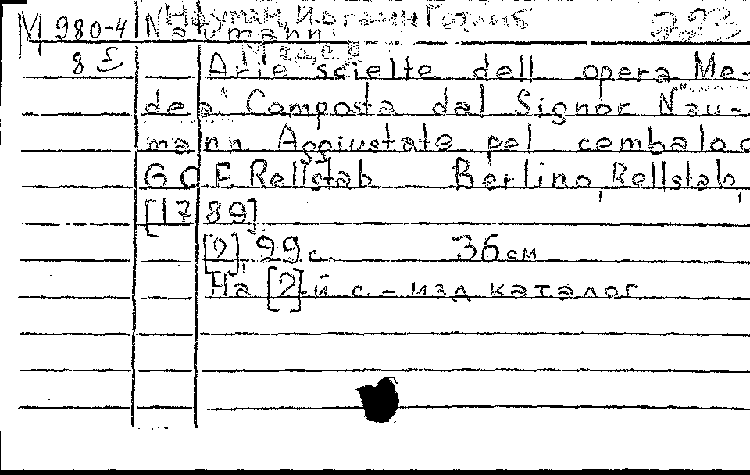 М 980-4 Науман, Иоганн Готлиб 223
8 Naumann
Медея
Arie scielte dell opera Me-
dea Composta dal Signor Nau-
mann Aggiustate pel cembalo d
G C F Rellstab Berlino, Rellstab,
[1789]
[2], 99 с. 36 см
На [2]-й с. - изд каталог